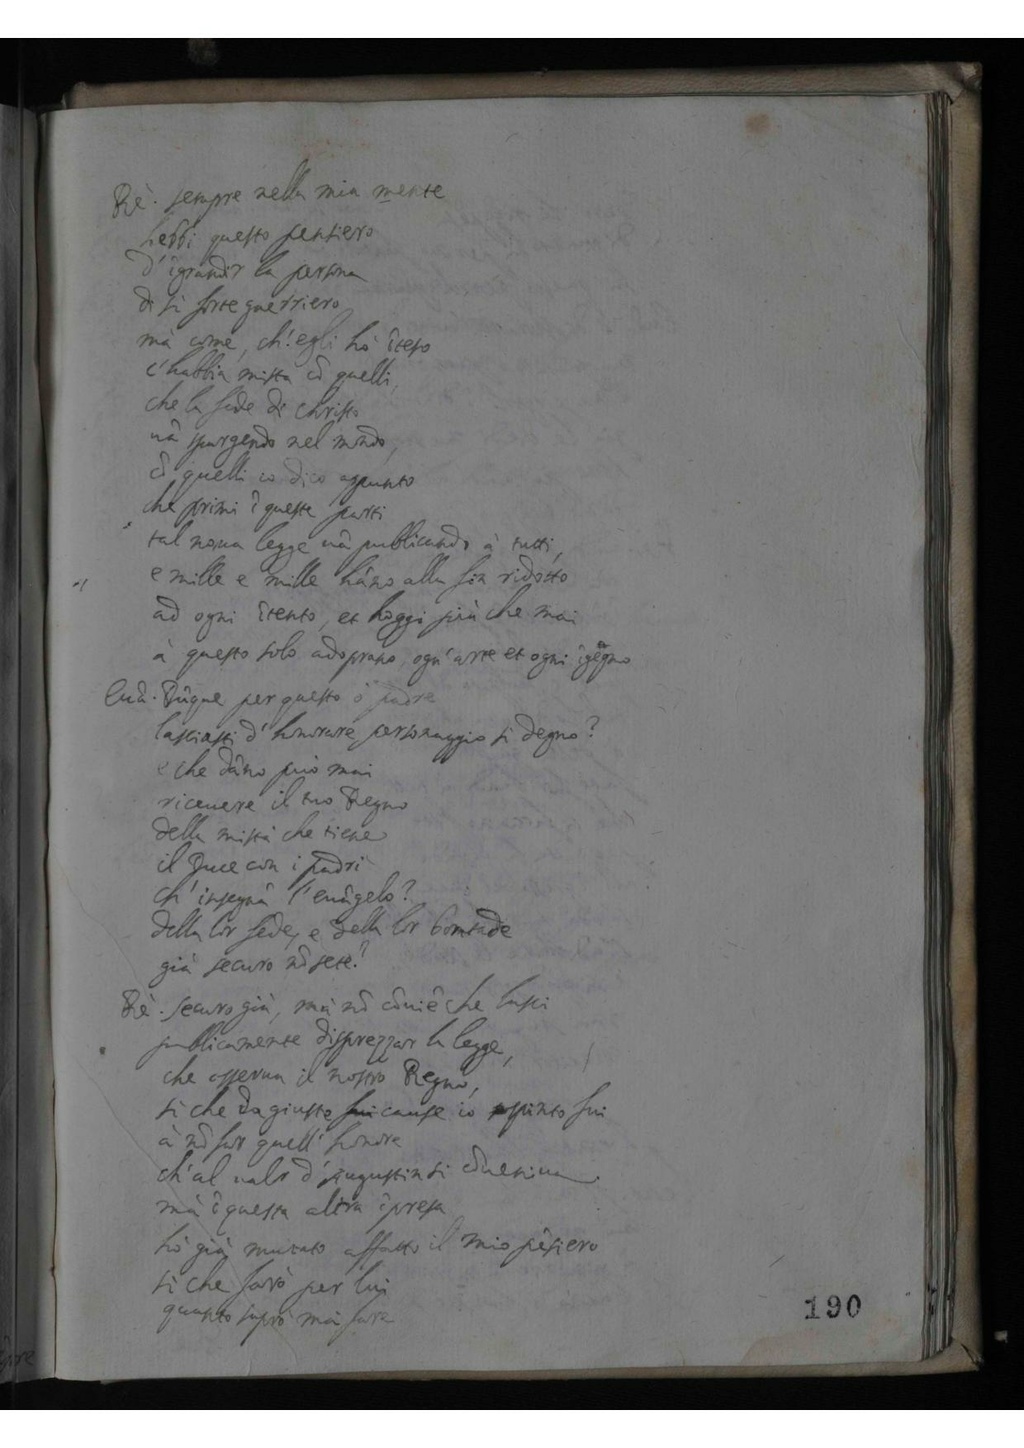 Rè. sempre nella mia mente
hebbi questo pensiero
d'īgrandir la persona
di si forte guerriero
mà come, ch'egli hò īteso
c'habbia mista cō quelli,
che la fede di Christo
uà spargendo nel mōdo,
cō quelli io dico appunto
che primi ī queste parti
tal noua legge uā publicando à tutti,
e mille e mille hāno alla fin ridotto
ad ogni ītento, et hoggi più che mai
à questo solo adoprano ogn'arte et ogni īgegno
Euā. Dūque per questo ò padre
lasciasti d'honorare personaggio si degno?
e che dāno può mai
riceuere il tuo Regno
della mistà che tiene
il Duce con i padri
ch'insegnā l'euāgelo?
della lor fede, e della lor bontade
già securo nō sete?
Rè. securo già, mà nō cōuiē che lasci
publicamente disprezzar la legge,
che osserua il nostro Regno,
si che da giuste cause io spinto fui
à nō far quell'honore
ch'al ualor d'Augustin si cōueniua.
mà ī questa altra īpresa
hò già mutato affatto il mio pēsiero
si che farò per lui
quanto saprò mai fare
190